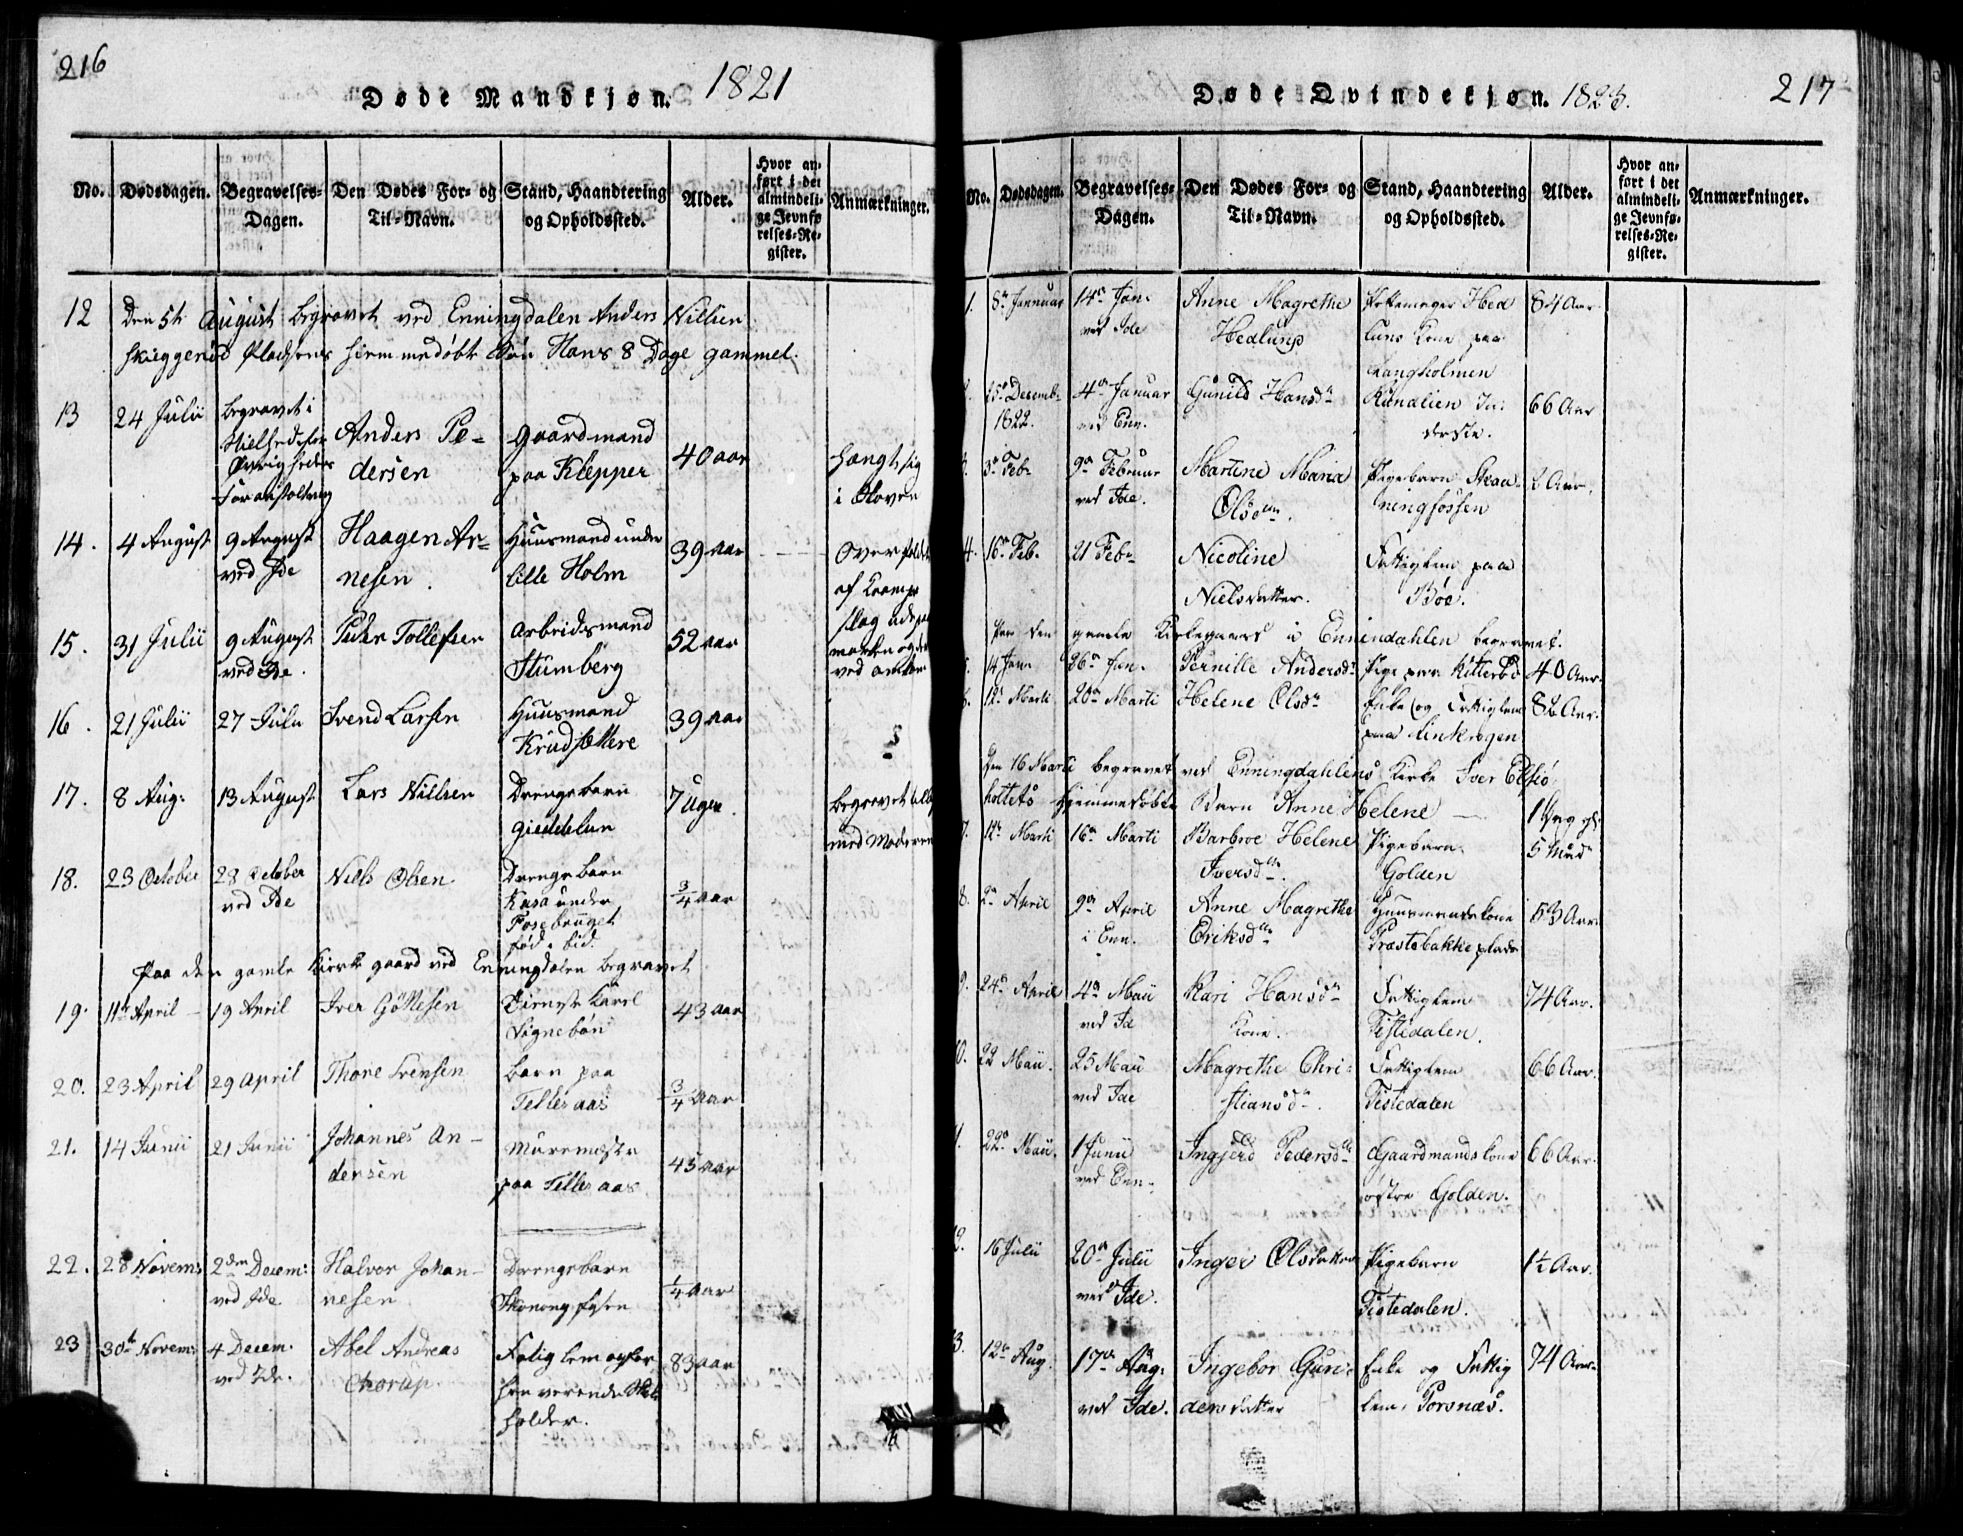 216
Døde Mandkjøn. 1821
No.
Dødsdagen.
Begravelses-
Dagen.
Den Dødes For- og
Til-Navn.
Stand, Haandtering
og Opholdssted.
Alder.
Hvor an-
ført i det
almindeli-
ge Jevnfø-
relses-Re-
gister.
Anmærkninger.
12 Den 5te August begravet ved Enningdalen Anders Nilsen
Pladsens hiemmedøbt Søn Hans 8 Dage gammel.
13
24 Julii
begravet i
Øvrigheds
Foranstaltning
Anders Pe-
dersen
Gaardmand
paa Klepper
40 aar
hængt sig
i Skoven
14.
4 August
9 August
ved Ide
Haagen Ar-
nesen.
Huusmand under
lille Holm
39 aar
15.
31 Julii
9 August
ved Ide.
Peder Tollefsen
Arbeidsmand
Stumberg
52 aar
16.
21 Julii
27 Julii
Svend Larsen
Huusmand
39 aar
17.
8 Aug:
13 August
Lars Nielsen
Drengebarn
Gieddelun
7 Uger.
begravet
med Moderen
18.
23 October
28 October
ved Ide
Niels Olsen
Drengebarn
Kasa under
Fosebruget
3/4 aar
Paa den gamle Kirkegaard ved Enningdalen begravet
19.
11te April
19 April
Iver Göttesen
Tieneste Karl
Vignebön
43 aar
20.
23 April
29 April
Thore Svensen
barn paa
Tellesaas
3/4 aar
21.
14 Junii
21 Junii
Johannes An-
dersen
Muremester
paa Tellesaas
45 aar
22.
28 Novem:
2den Decem:
ved Ide.
Halvor Johan-
nesen
Drengebarn
1/4 aar
23
30te Novem:
4 Decem.
ved Ide.
Abel Andreas
Chorup.
holder.
83 aar
217
Døde Qvindekjøn. 1823.
No.
Dødsdagen.
Begravelses-
Dagen.
Den Dødes For- og
Til-Navn.
Stand, Haandtering
og Opholdssted.
Alder.
Hvor an-
ført i det
almindeli-
ge Jevnfø-
relses-Re-
gister.
Anmærkninger.
1.
8de Januar
14de Jan:
ved Ide
Anne Magrethe
Hedlund
Pottemager Hed
luns Kone paa
Langholmen
84 Aar.
25de Decemb.
1822.
4de Januar
ved Enn.
Gunild Hansdr
66 Aar
3de Feb.
9de Februar
ved Ide.
Martine Maria
Olsdr.
Pigebarn Skaa-
ningfossen
Aar.
4.
16de Feb.
21 Febr
Nicoline
Nielsdatter.
Fattiglem paa
Böe.
Paa den gamle Kirkegaard i Ennindahlen begravet.
26de Jan.
Pernille Andersdr
Pige paa Kitterbö
40 Aar.
12te Marti
20de Marti
Helene Olsdr
Enke og Fattiglem
paa Linkrogen
Aar.
Den 16 Marti begravet ved Enningdahlens Kirke Iver Elsiö-
holtets Hjemmedøbte Barn Anne Helene 1 Dag gl.
12te Marti
16de Marti
Barbroe Helene
Iversdr.
Pigebarn.
Golden
5 Mndr
8.
2de April
9de April
i Enn.
Anne Magrethe
Eriksdr
Huusmandskone
Præstebakke plads
53 Aar.
9.
24de April
4de Maii
ved Id
Kari Hansdr
Kone.
Fattiglem
Tistedalen.
74 Aar.
22 Maii.
25 Maii
ved Ide
Magrethe Chri-
stiansdr.
Fattiglem
Tistedalen
66 Aar.
22de Maii.
1 Junii
ved Enn.
Ingjerd Pedersdr
Gaardmandskone
østre Golden.
66 Aar.
16 Julii
20de Julii
ved Ide.
Inger Olsdatter
Pigebarn
Tistedalen.
1½ Aar.
12te Aug.
17de Aug:
ved Ide.
Ingebor Gun-
dersdatter
Enke og Fattig
lem, Torsnæs.
74 Aar.